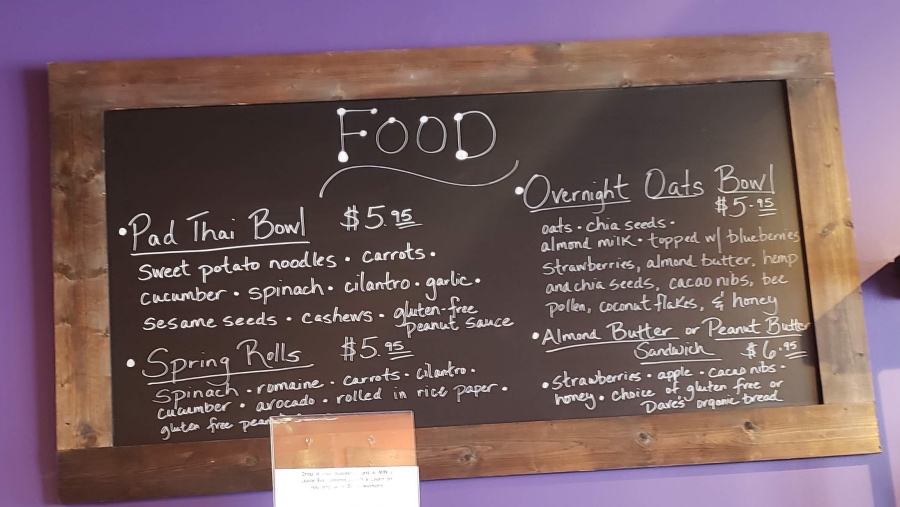 FOOD
• Pad Thai Bowl $5.95
sweet potato noodles • carrots •
cucumber • spinach • cilantro • garlic •
sesame seeds • cashews • gluten-free
peanut sauce
• Spring Rolls $5.95
spinach • romaine • carrots • cilantro •
cucumber • avocado • rolled in rice paper •
gluten free
• Overnight Oats Bowl
$5.95
oats • chia seeds •
almond milk • topped w/ blueberries
strawberries, almond butter, hemp
and chia seeds, cacao nibs, bee
pollen, coconut flakes, & honey
• Almond Butter or Peanut Butter
Sandwich $6.95
• strawberries • apple • cacao nibs •
honey • choice of gluten free or
Dave's organic bread